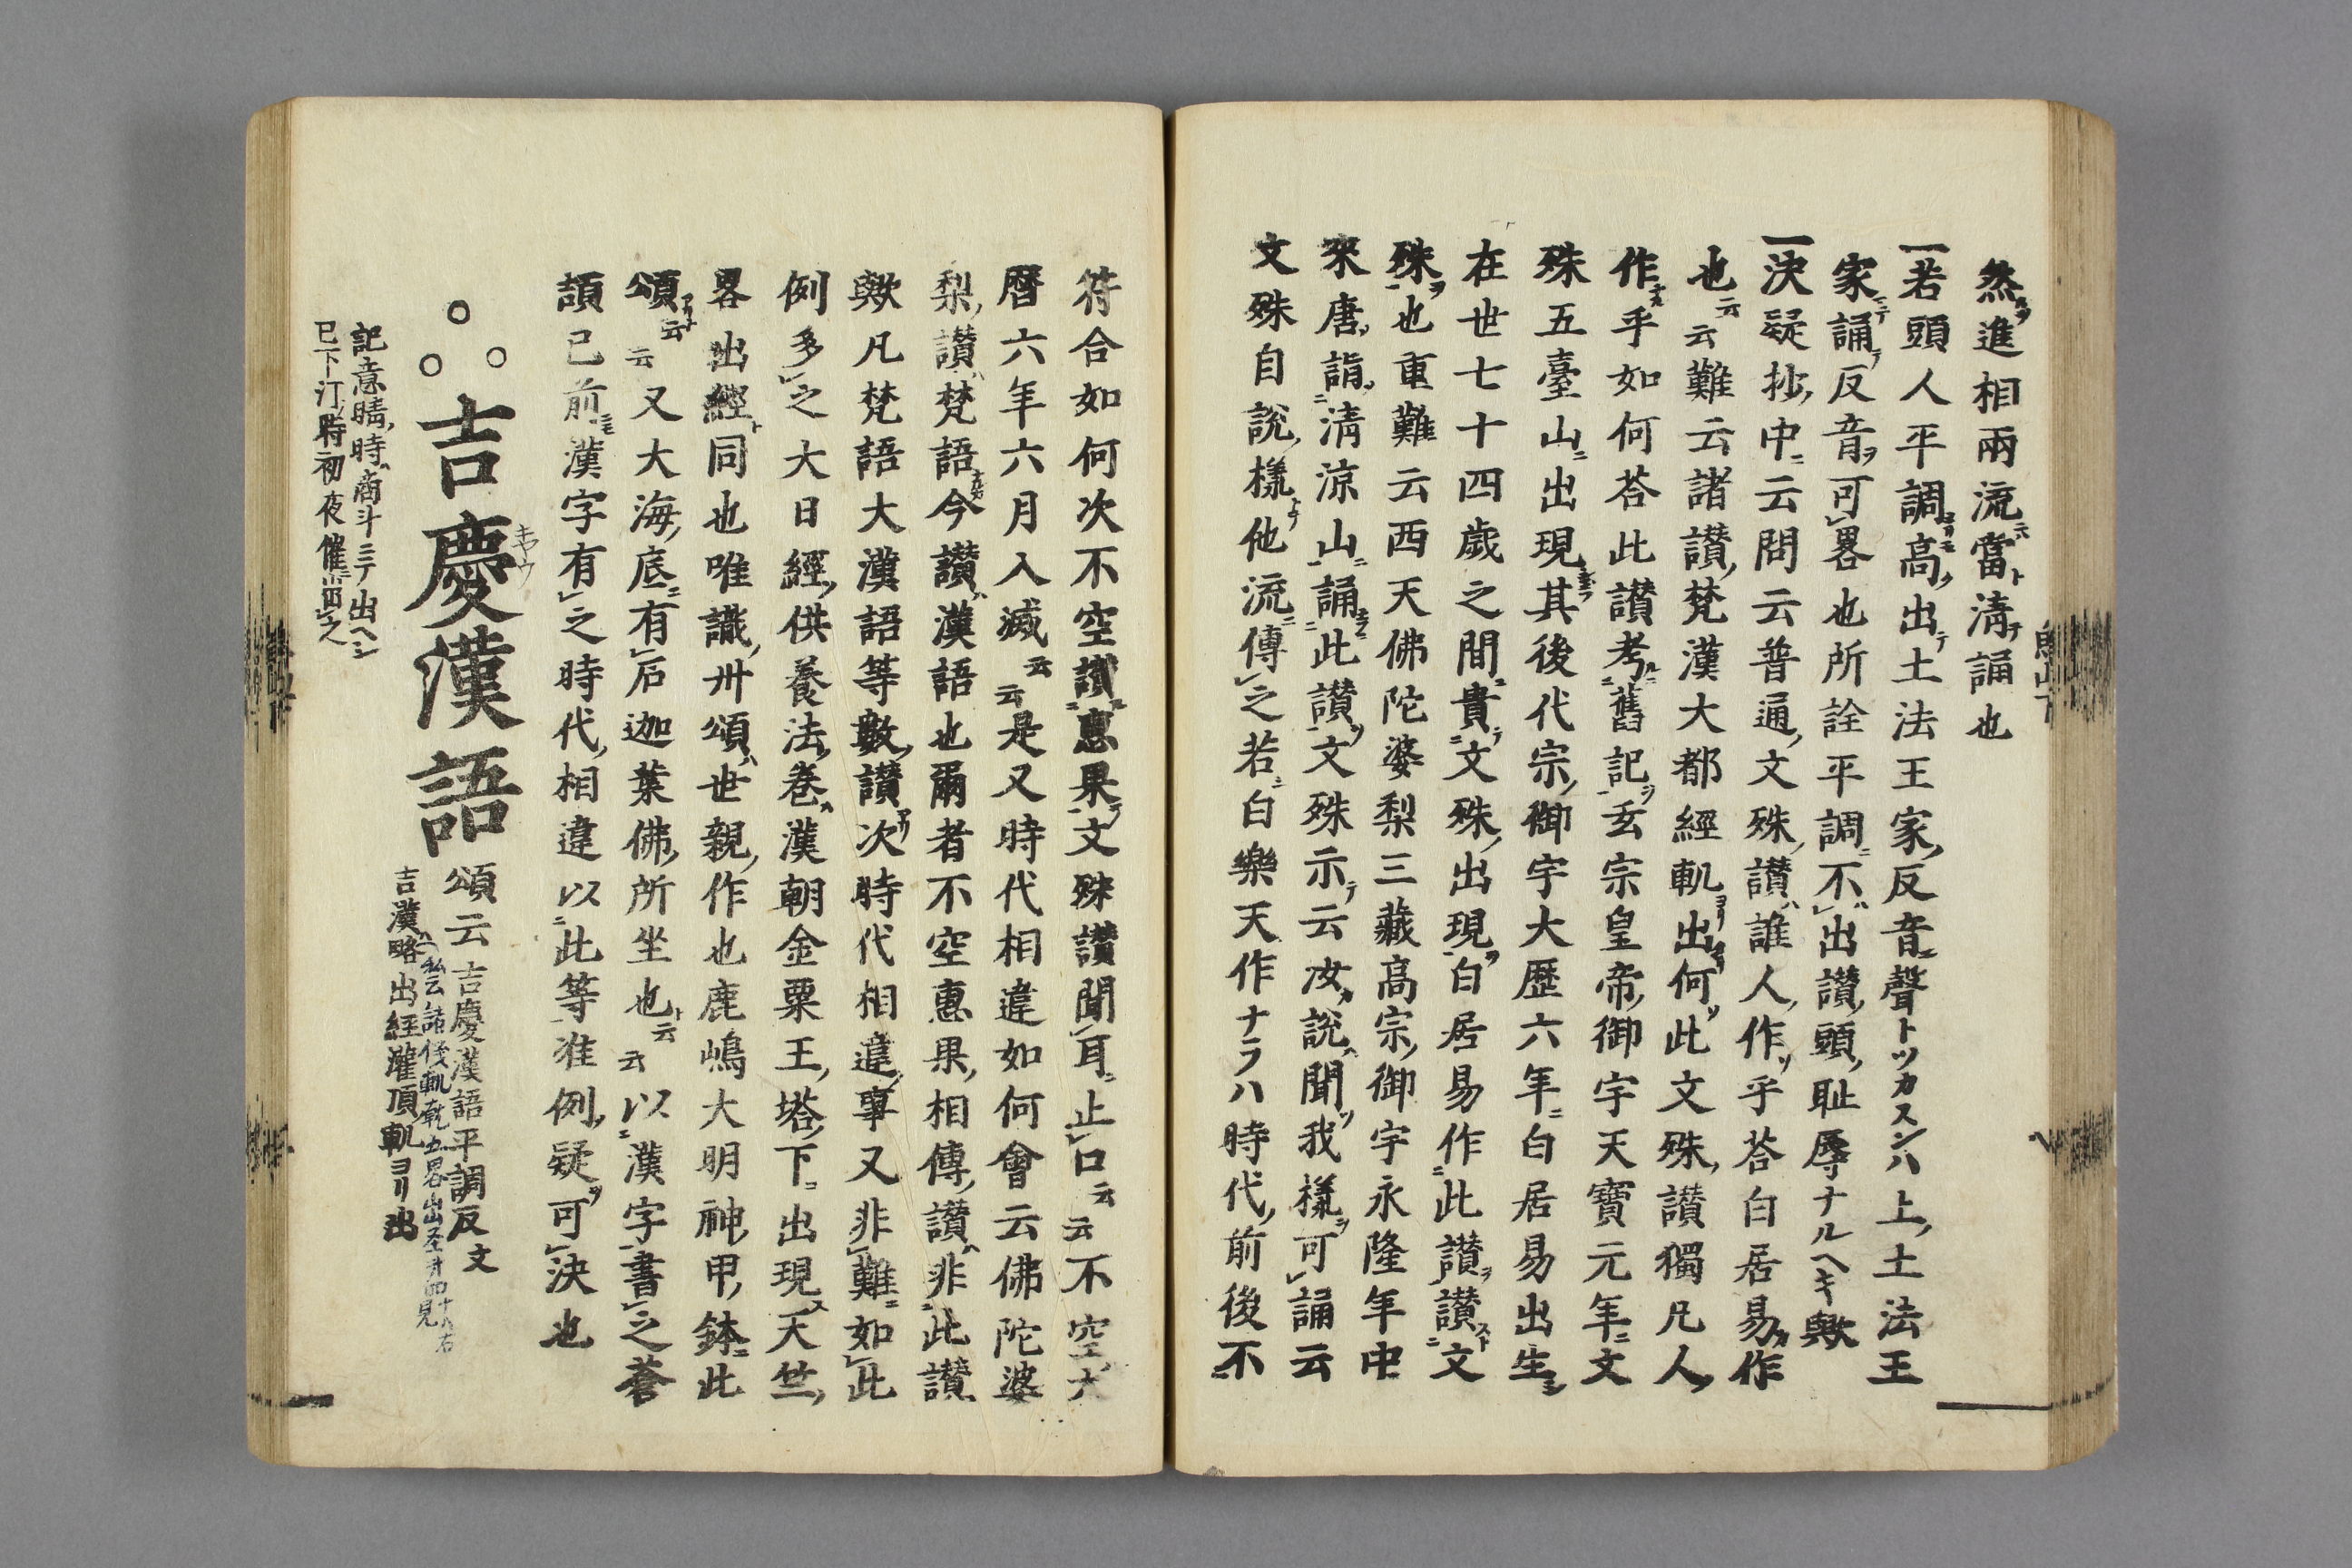 然進相兩流當淸誦也
一若頭人平調高出土法王家反音聲トツカスンハ上土法王
家誦反音可畧也所詮平調不出讃頭耻辱ナルヘキ歟
一決疑抄中云問云普通文殊讃誰人作乎荅白居易作
也云云難云諸讃梵漢大都經軌出何此文殊讃獨凡人
作乎如何荅此讃考舊記玄宗皇帝御宇天寶元年文
殊五臺山出現其後代宗御宇大歷六年白居易出生
在世七十四歲之間貴文殊出現白居易作此讃讃文
殊也重難云西天佛陀婆梨三藏高宗御宇永隆年中
來唐詣淸涼山誦此讃文殊示云汝說聞我樣可誦云
文殊自說樣他流傳之若白樂天作ナラハ時代前後不
符合如何次不空讃惠果文殊讃聞耳止口云云不空大
曆六年六月入滅云云是又時代相違如何會云佛陀婆
梨讃梵語今讃漢語也爾者不空惠果相傳讃非此讃
歟凡梵語大漢語等數讃次時代相違事又非難如此
例多之大日經供養法卷漢朝金粟王塔下出現天竺
畧出經同也唯識卅頌世親作也鹿嶋大明神甲鉢此
頌云云又大海底有石迦葉佛所坐也云云以漢字書之蒼
頡已前漢字有之時代相違以此等准例疑可決也
吉慶漢語
キヤウ
頌云吉慶漢語平調反文
吉漢略出經灌頂軌ヨリ出
記意晴時商斗三丁出ヘシ
已下汀時初夜催畄之
魚山下